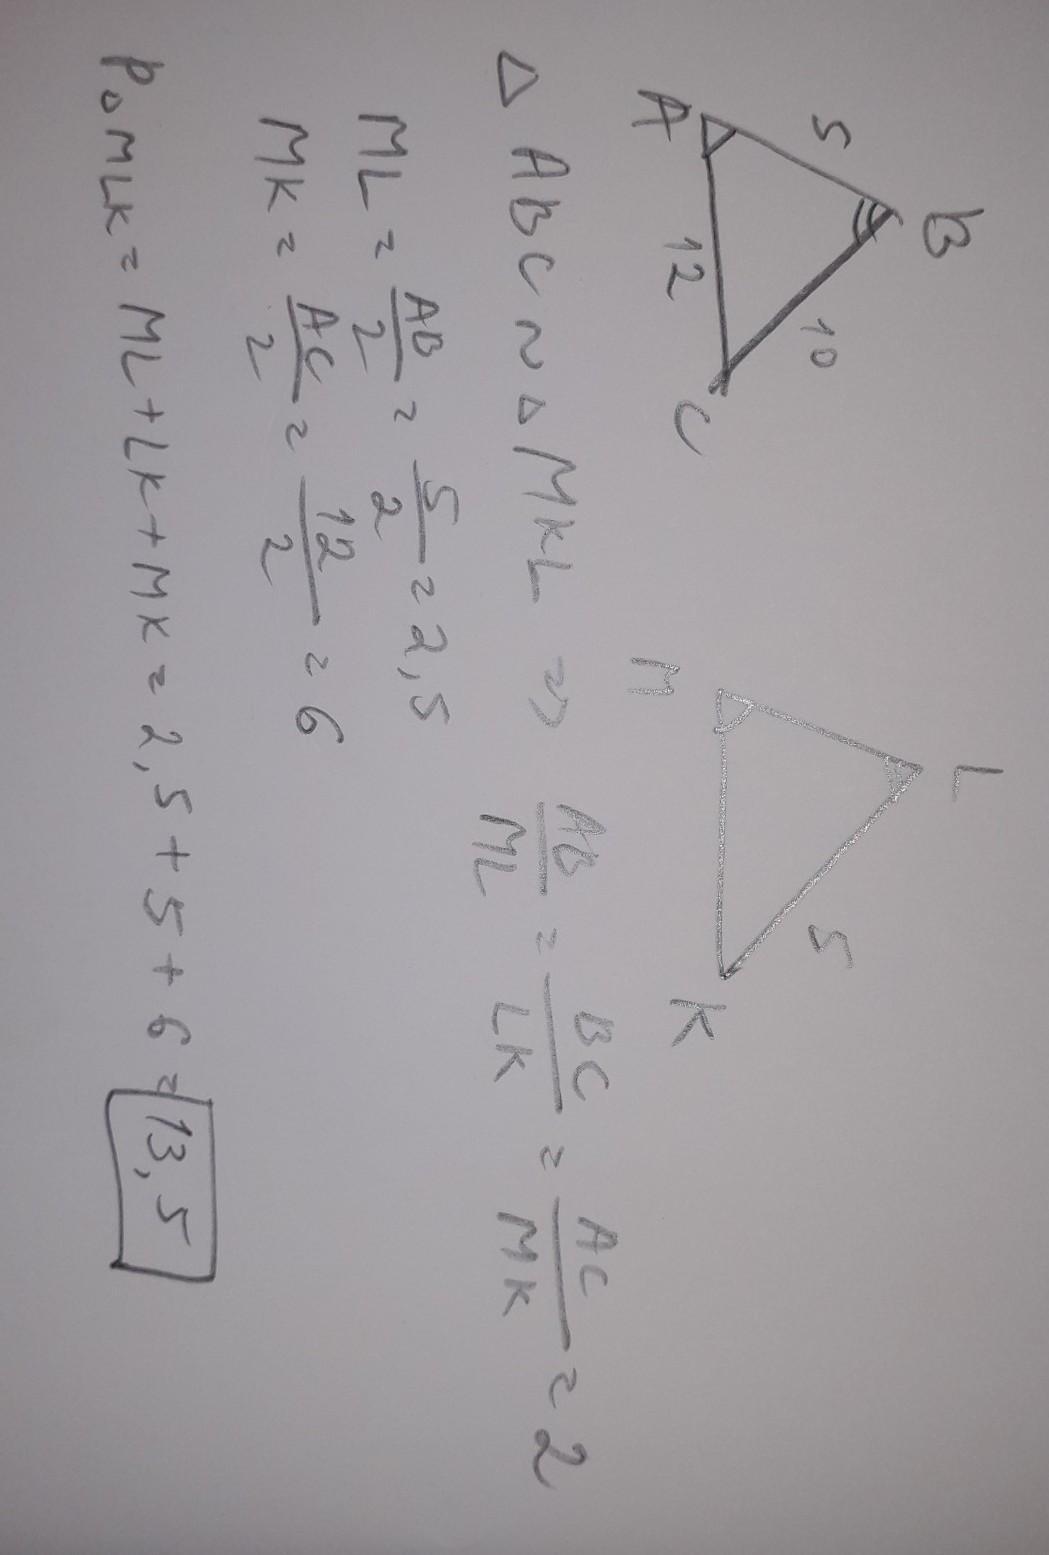 B
L
5
10
5
A
12
C
M
K
△ABC ~ △MKL ⇒ AB/ML = BC/LK = AC/MK = 2
ML = AB/2 = 5/2 = 2,5
MK = AC/2 = 12/2 = 6
P△MLK = ML+LK+MK = 2,5+5+6 = 13,5